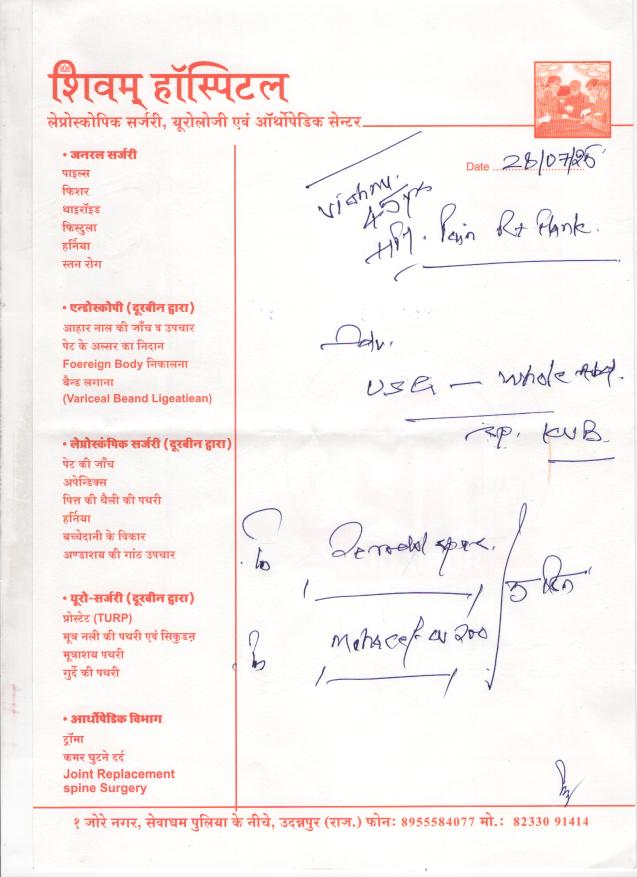 शिवम् हॉस्पिटल
लेप्रोस्कोपिक सर्जरी, यूरोलोजी एवं ऑर्थोपेडिक सेन्टर
• जनरल सर्जरी
पाइल्स
फिशर
थाइरॉइड
फिस्टुला
हर्निया
स्तन रोग
• एन्डोस्कोपी (दूरबीन द्वारा)
आहार नाल की जाँच व उपचार
पेट के अल्सर का निदान
Foereign Body निकालना
बैन्ड लगाना
(Variceal Beand Ligeatiean)
• लेप्रोस्कंपिक सर्जरी (दूरबीन द्वारा)
पेट की जाँच
अपेन्डिक्स
पित्त की थैली की पथरी
हर्निया
बच्चेदानी के विकार
अण्डाशय की गांठ उपचार
• यूरो-सर्जरी (दूरबीन द्वारा)
प्रोस्टेट (TURP)
मूत्र नली की पथरी एवं सिकुडन
मूत्राशय पथरी
गुर्दे की पथरी
• आर्थोपेडिक विभाग
ट्रॉमा
कमर घुटने दर्द
Joint Replacement
spine Surgery
Date 28/07/25
Vishnu.
45 yrs
Pain Rt Flank.
Adv.
USG - Whole Abd.
KUB
spas.
5 दिन
Mahacef- CV 200
१ जोरे नगर, सेवाधम पुलिया के नीचे, उदन्नपुर (राज.) फोनः 8955584077 मो.: 82330 91414